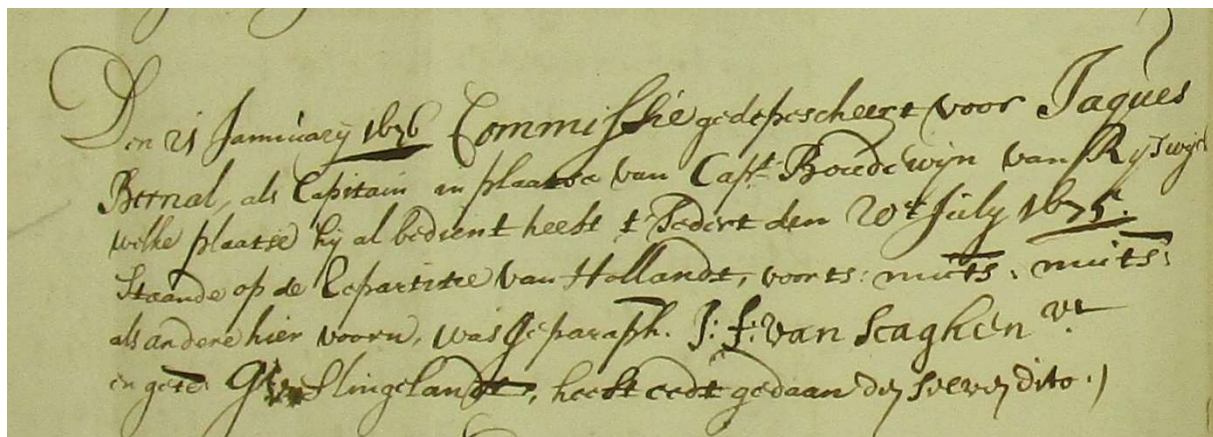 Den 21 Januüarÿ 1676 Commissie gedepescheert voor Jaques
Bernal, als Capitain in plaatse van Capt: Boudewijn van Rijswijck
welke plaatse hij al bedient heeft t'sedert den 20e July 1675.
Staande op de Repartitie van Hollandt, voorts: mūts: mūts:
als andere hier voorn, was geparaph. J: f: van Scaghen vt
en gete: G Slingelandt, heeft eedt gedaan den selven dito.)